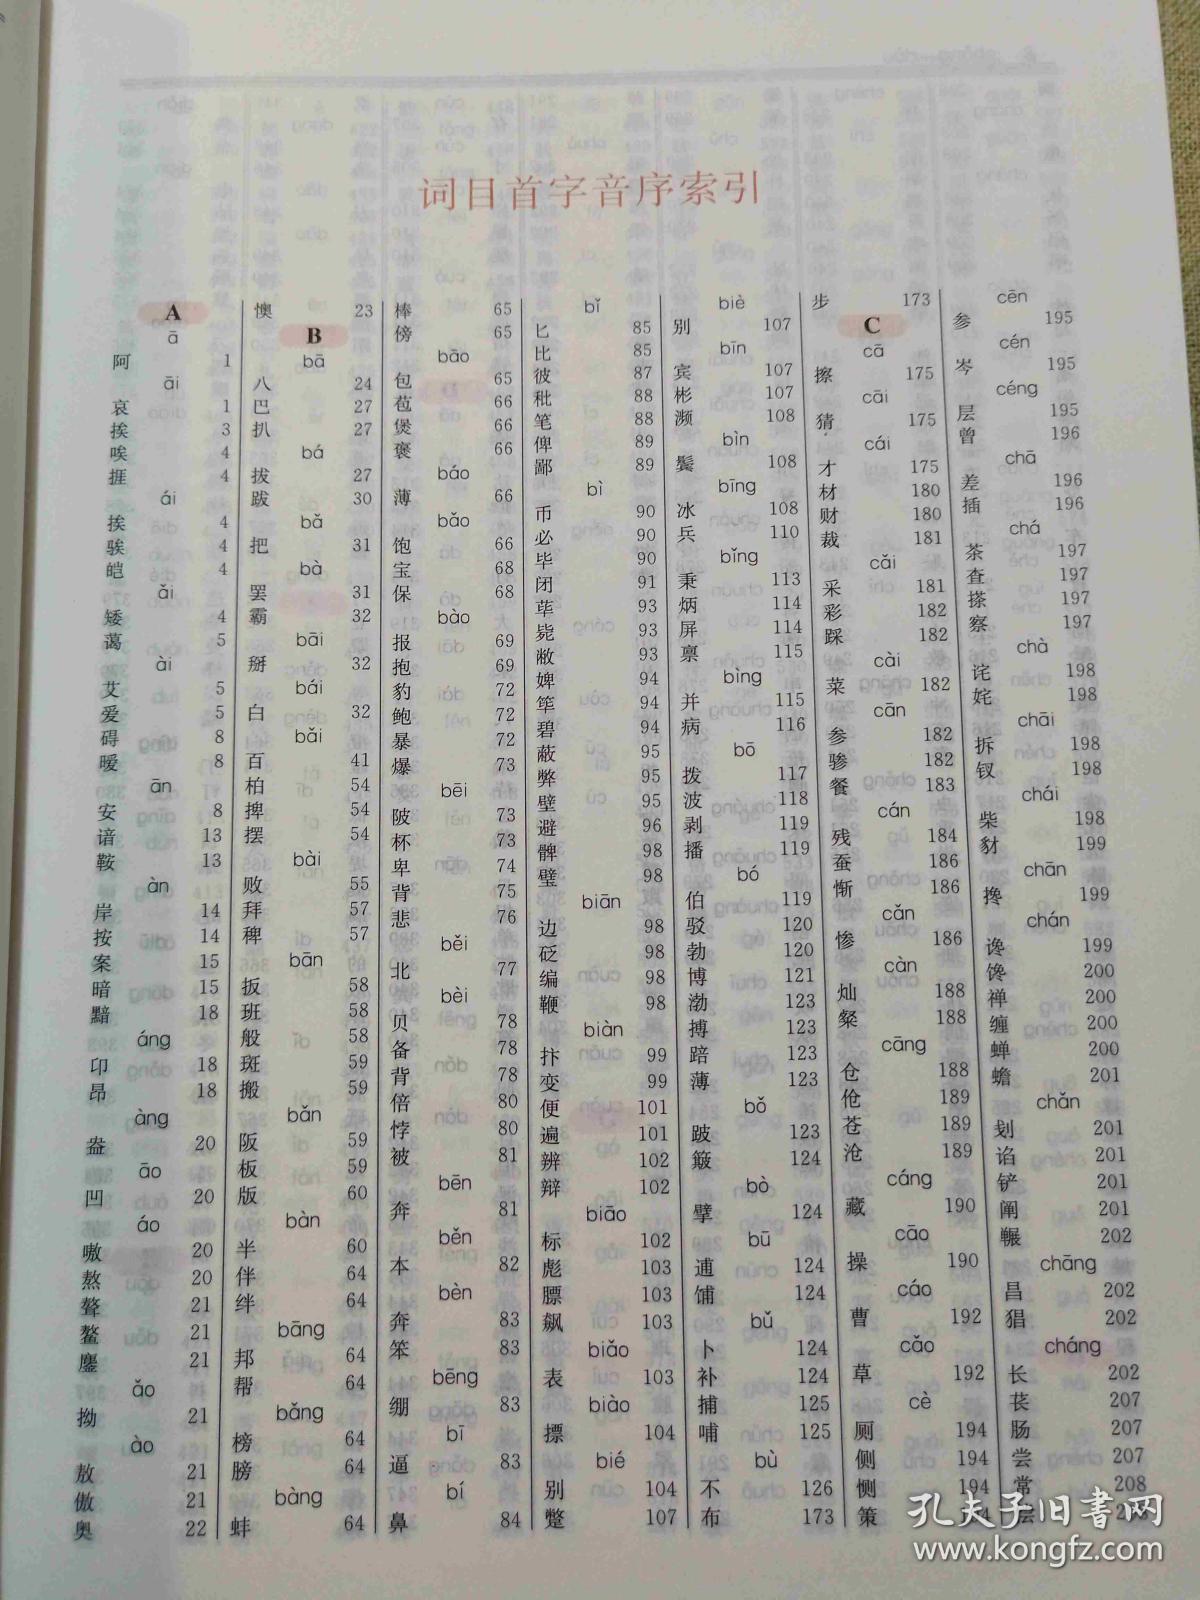 词目首字音序索引
A
ā
阿 1
āi
哀 1
挨 3
唉 4
捱 4
ái
挨 4
骏 4
皑 4
ǎi
矮 4
蔼 5
ài
艾 5
爱 5
碍 8
暧 8
ān
安 8
谙 13
鞍 13
àn
岸 14
按 14
案 15
暗 15
黯 18
áng
卬 18
昂 18
àng
盎 20
āo
凹 20
áo
嗷 20
熬 20
聱 21
鳌 21
鏖 21
ǎo
拗 21
ào
敖 21
傲 21
奥 22
懊 23
B
bā
八 24
巴 27
扒 27
bá
拔 27
跋 30
bǎ
把 31
bà
罢 31
霸 32
bāi
掰 32
bái
白 32
bǎi
百 41
柏 54
捭 54
摆 54
bài
败 55
拜 57
稗 57
bān
扳 58
班 58
般 58
斑 59
搬 59
bǎn
阪 59
板 59
版 60
bàn
半 60
伴 64
绊 64
bāng
邦 64
帮 64
bǎng
榜 64
膀 64
bàng
蚌 64
棒 65
傍 65
bāo
包 65
苞 66
煲 66
褒 66
báo
薄 66
bǎo
饱 66
宝 68
保 68
bào
报 69
抱 69
豹 72
鲍 72
暴 72
爆 73
bēi
陂 73
杯 73
卑 74
背 75
悲 76
běi
北 77
bèi
贝 78
备 78
背 78
倍 80
悖 80
被 81
bēn
奔 81
běn
本 82
bèn
奔 83
笨 83
bēng
绷 83
bī
逼 83
bí
鼻 84
bǐ
匕 85
比 85
彼 87
秕 88
笔 88
俾 89
鄙 89
bì
币 90
必 90
毕 90
闭 91
荜 93
毙 93
敝 93
婢 94
筚 94
碧 94
蔽 95
弊 95
壁 95
避 96
髀 98
璧 98
biān
边 98
砭 98
编 98
鞭 98
biàn
抃 99
变 99
便 101
遍 101
辨 102
辩 102
biāo
标 102
彪 103
膘 103
飙 103
biǎo
表 103
biào
摽 104
bié
别 104
蹩 107
biè
别 107
bīn
宾 107
彬 107
濒 108
bìn
鬓 108
bīng
冰 108
兵 110
bǐng
秉 113
炳 114
屏 114
禀 115
bìng
并 115
病 116
bō
拨 117
波 118
剥 119
播 119
bó
伯 119
驳 120
勃 120
博 121
渤 123
搏 123
踣 123
薄 123
bǒ
跛 123
簸 124
bò
擘 124
bū
逋 124
馎 124
bǔ
卜 124
补 124
捕 125
哺 125
bù
不 126
布 173
步 173
C
cā
擦 175
cāi
猜 175
cái
才 175
材 180
财 180
裁 181
cǎi
采 181
彩 182
踩 182
cài
菜 182
cān
参 182
骖 182
餐 183
cán
残 184
蚕 186
惭 186
cǎn
惨 186
càn
灿 188
粲 188
cāng
仓 188
伧 189
苍 189
沧 189
cáng
藏 190
cāo
操 190
cáo
曹 192
cǎo
草 192
cè
厕 194
侧 194
恻 194
策
cēn
参 195
cén
岑 195
céng
层 195
曾 196
chā
差 196
插 196
chá
茶 197
查 197
搽 197
察 197
chà
诧 198
姹 198
chāi
拆 198
钗 198
chái
柴 198
豺 199
chān
搀 199
chán
谗 199
馋 200
禅 200
缠 200
蝉 200
蟾 201
chǎn
刬 201
谄 201
铲 201
阐 201
冁 202
chāng
昌 202
猖 202
cháng
长 202
苌 207
肠 207
尝 207
常 208
孔夫子旧书网
www.kongfz.com